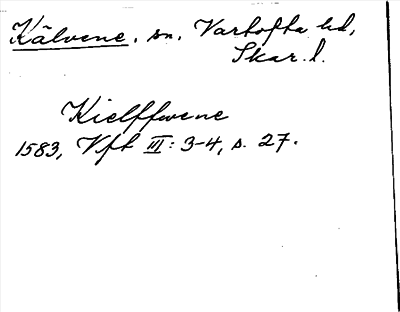 Kälvene. sn. Vartofta hd,
Skar. l.
Kielffwene
1583, Vft III: 3-4, s. 27.